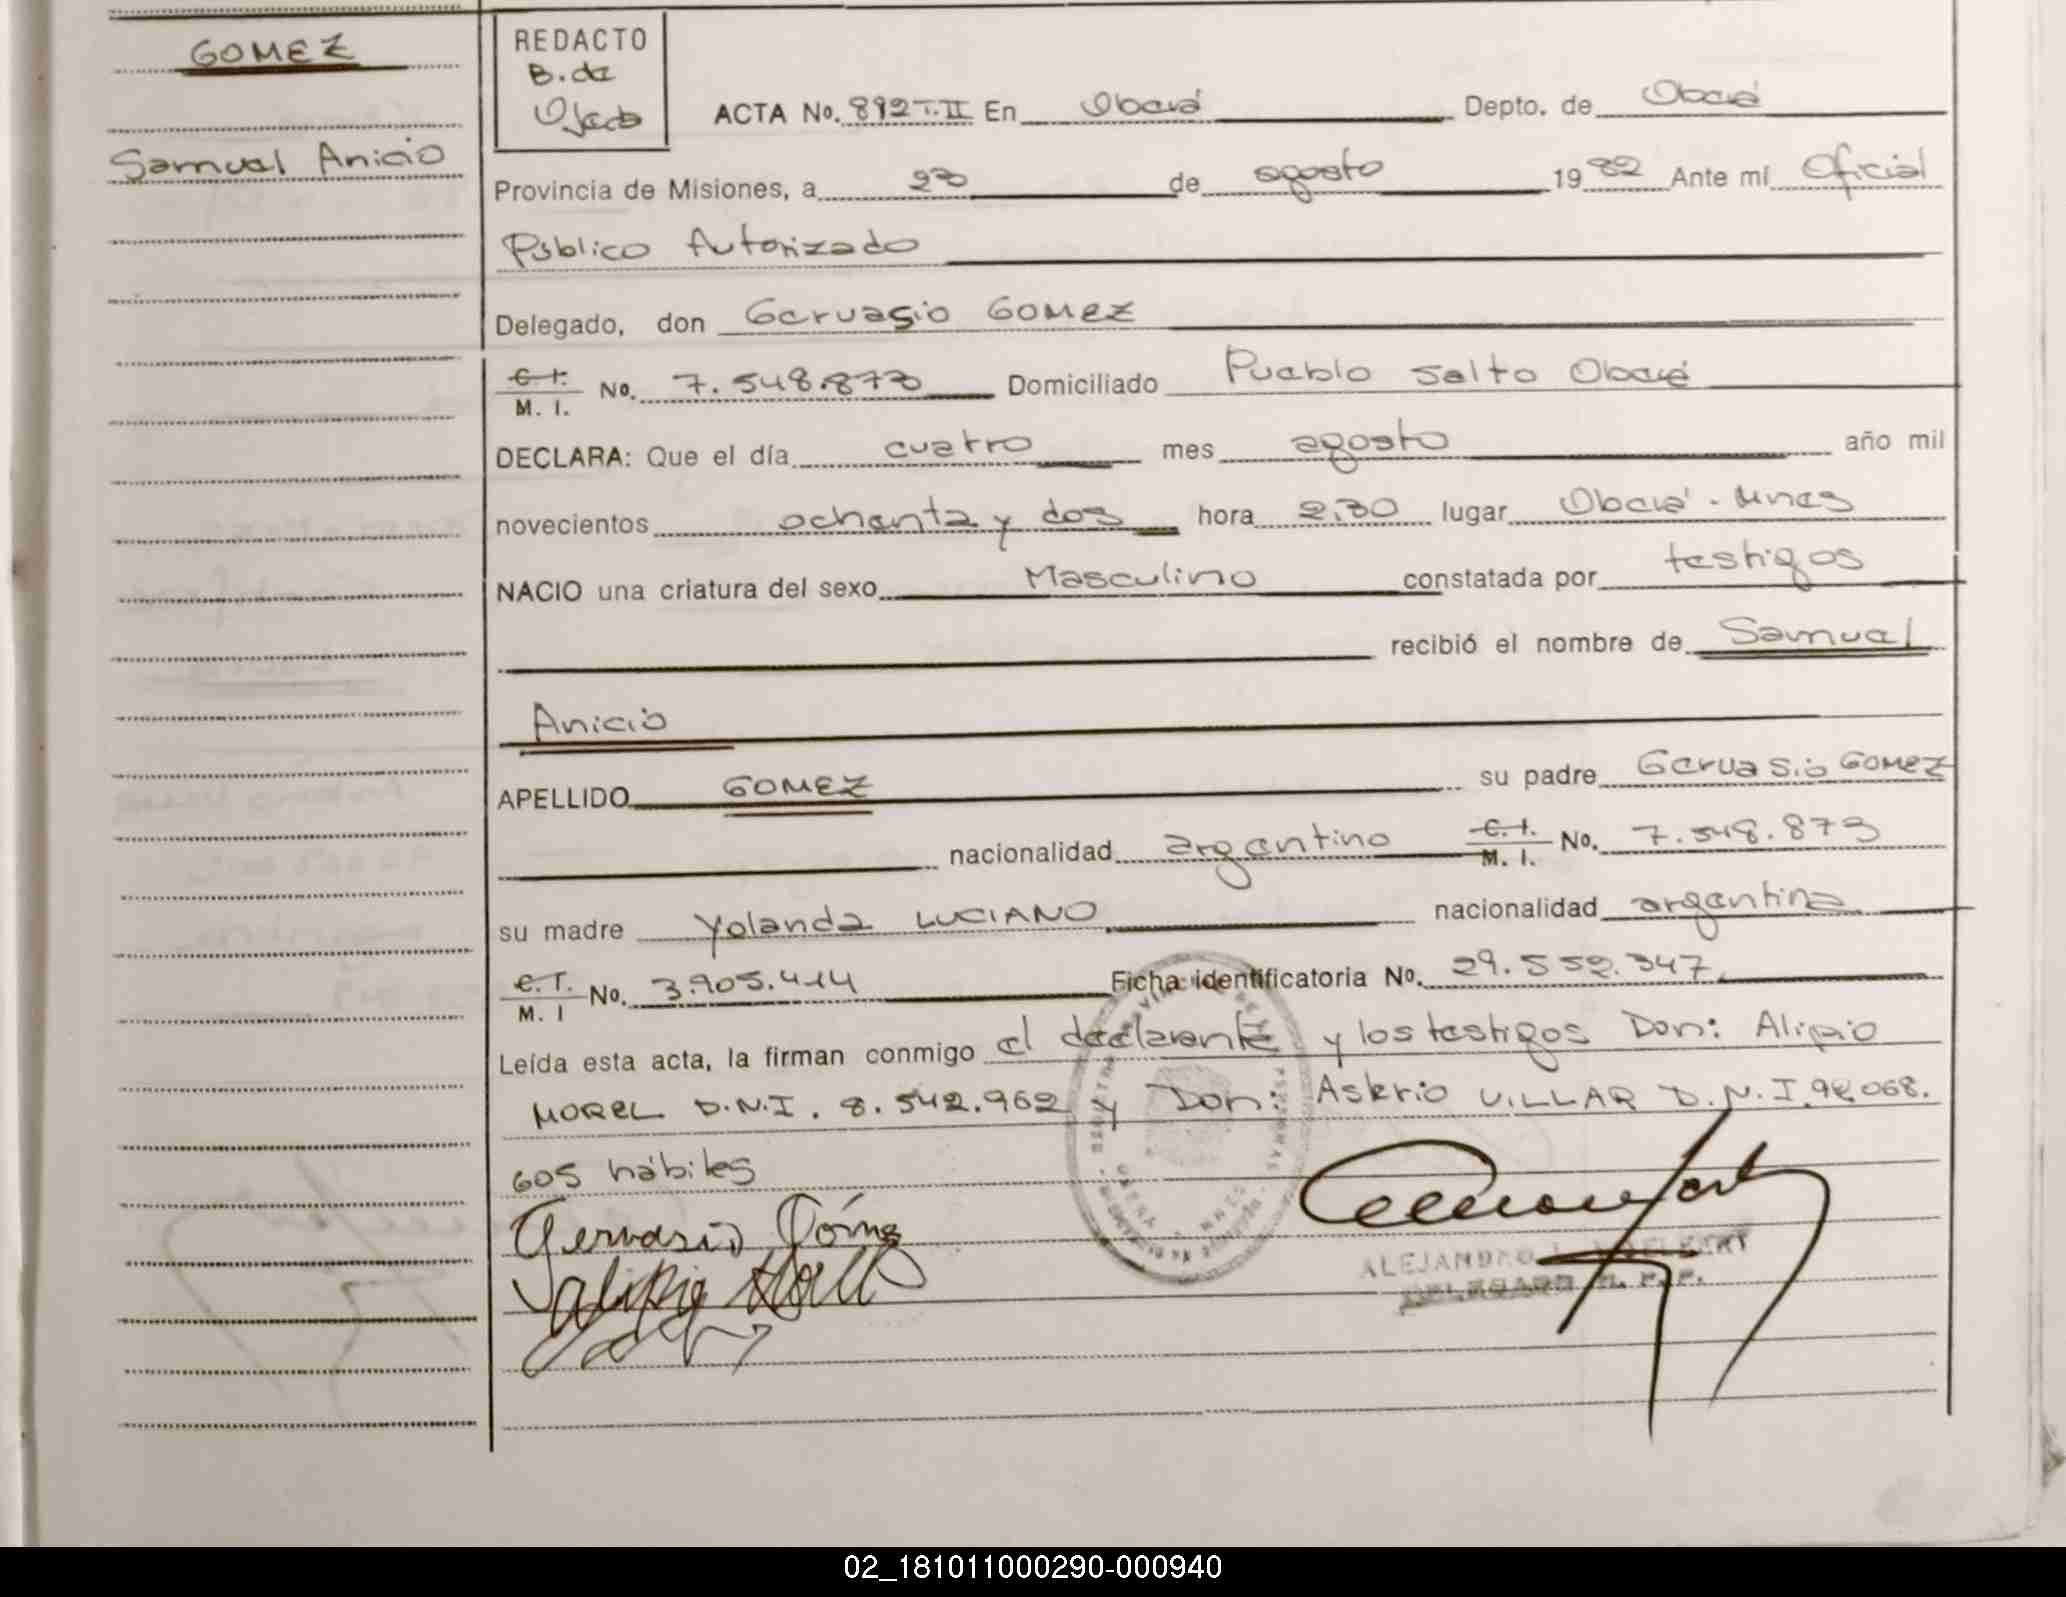 GOMEZ
Samuel Anicio
REDACTO
B. de
ACTA No. 892 T. II En Oberá Depto. de Oberá
Provincia de Misiones, a 20 de agosto 1982 Ante mí Oficial
Público Autorizado
Delegado, don Gervasio GOMEZ
C. I. M. I. No. 7.548.873 Domiciliado Pueblo Salto Oberá
DECLARA: Que el día cuatro mes agosto año mil
novecientos ochenta y dos hora 2,30 lugar Oberá - Mnes
NACIO una criatura del sexo Masculino constatada por testigos
recibió el nombre de Samuel
Anicio
APELLIDO GOMEZ su padre Gervasio GOMEZ
nacionalidad argentino C. I. M. I. No. 7.548.873
su madre Yolanda LUCIANO nacionalidad argentina
C. I. M. I No. 3.905.414 Ficha identificatoria No. 29.552.347
Leída esta acta, la firman conmigo el declarante y los testigos Don: Alipio
MOREL D.N.I. 8.542.962 y Don: Asterio VILLAR D.N.I. 92.068.
605 hábiles
Gervasio Gómez
ALEJANDRO
DELEGADO R. P. P.
02_181011000290-000940